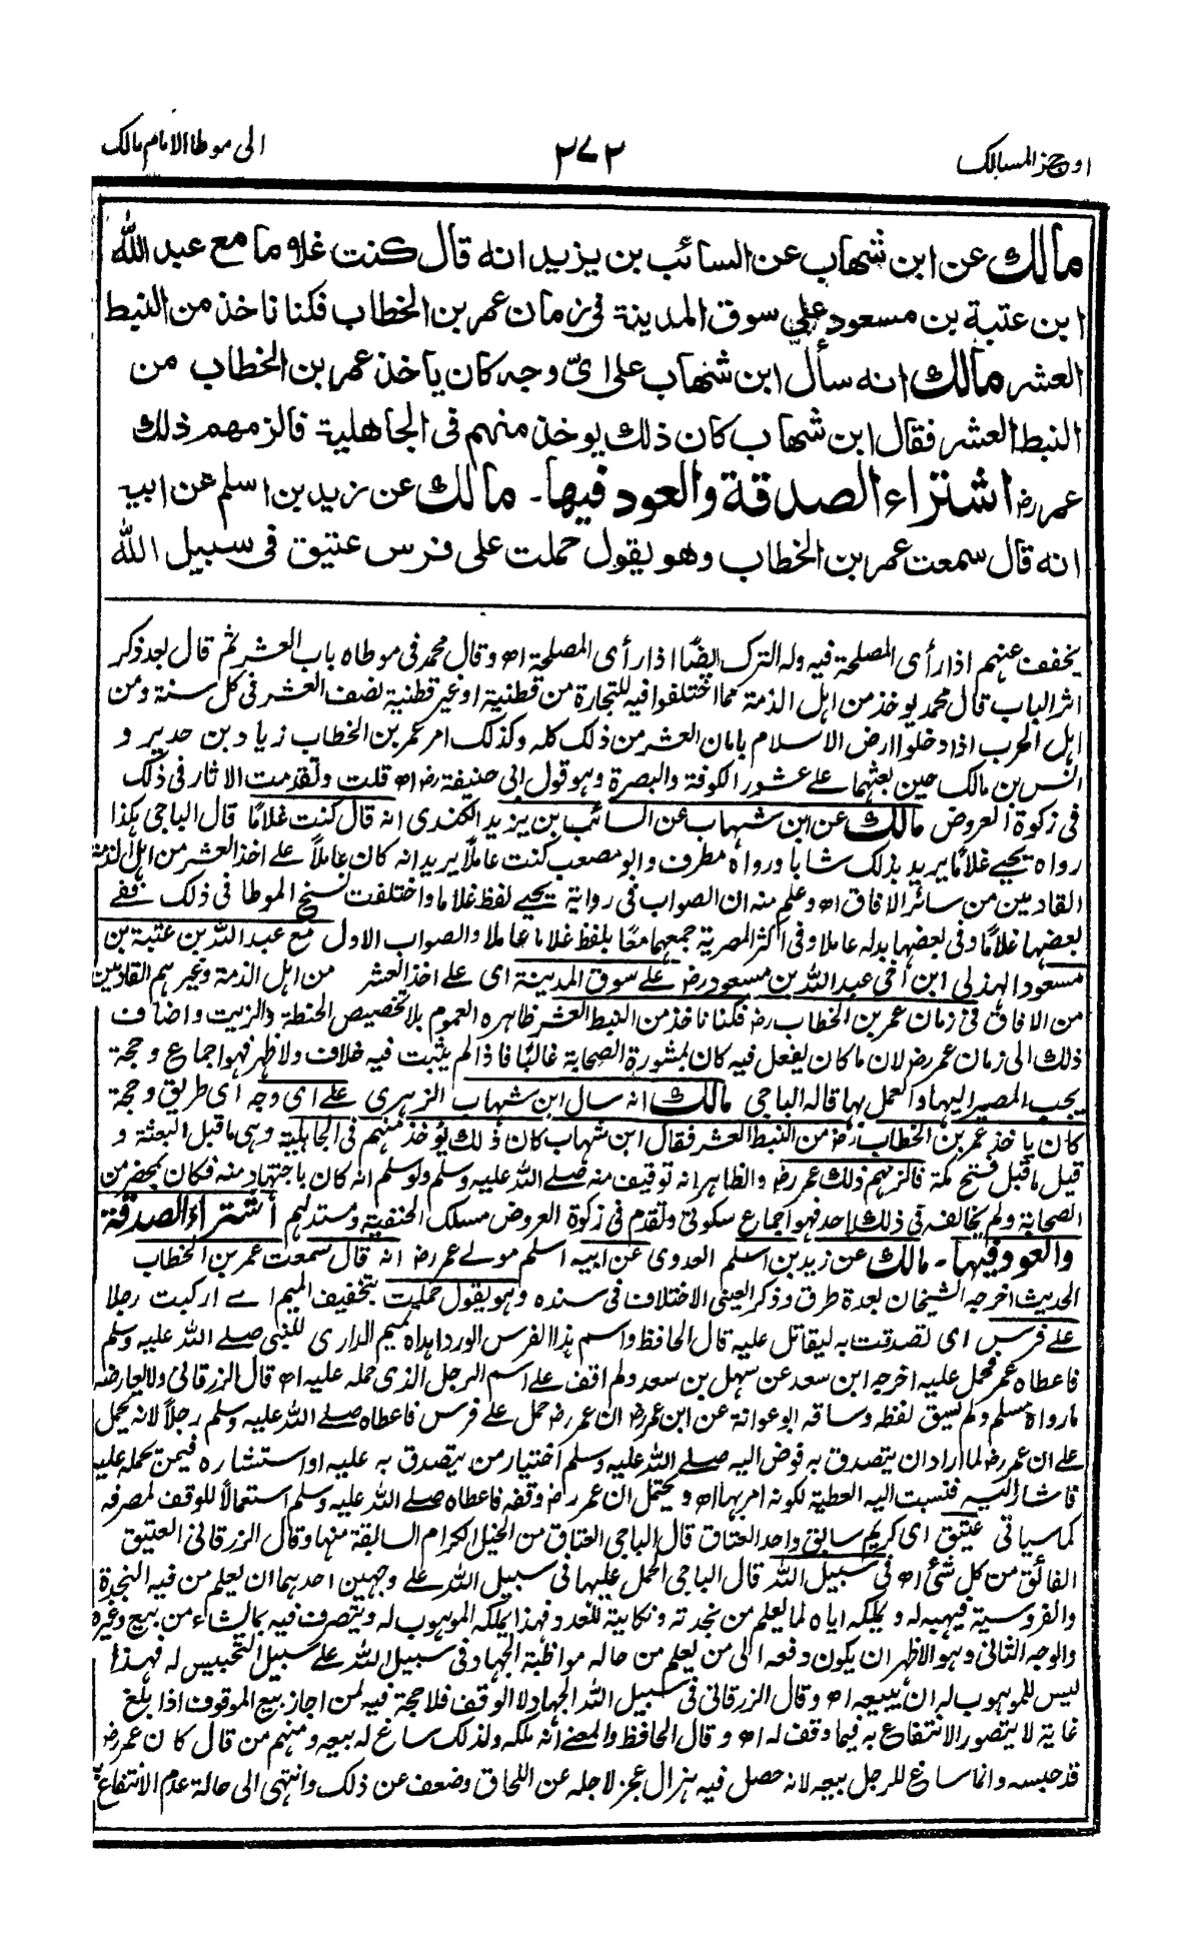 اوجز المسالك
٢٧٢
الى موطا الامام مالك
مالك عن ابن شهاب عن السائب بن يزيد انه قال كنت غلاما مع عبد الله
ابن عتبة بن مسعود على سوق المدينة فى زمان عمر بن الخطاب فكنا ناخذ من النبط
العشر مالك انه سأل ابن شهاب على اىّ وجه كان ياخذ عمر بن الخطاب من
النبط العشر فقال ابن شهاب كان ذلك يوخذ منهم فى الجاهلية فالزمهم ذلك
عمر رض اشتراء الصدقة والعود فيها۔ مالك عن زيد بن اسلم عن ابيه
انه قال سمعت عمر بن الخطاب وهو يقول حملت على فرس عتيق فى سبيل الله
يخفف عنهم اذا رأى المصلحة فيه وله الترك ايضًا اذا رأى المصلحة اھ وقال محمد فى موطاه باب العشر ثم قال بعد ذكر
اثر الباب قال محمد يوخذ من اهل الذمة مما اختلفوا فيه للتجارة من قطنية او غير قطنية نصف العشر فى كل سنة ومن
اهل الحرب اذا دخلوا ارض الاسلام بامان العشر من ذلك كله وكذلك امر عمر بن الخطاب زياد بن حدير و
انس بن مالك حين بعثهما على عشور الكوفة والبصرة وهو قول ابى حنيفة رض اھ قلت وتقدمت الاثار فى ذلك
فى زكوة العروض مالك عن ابن شهاب عن السائب بن يزيد الكندى انه قال كنت غلامًا قال الباجى هكذا
رواه يحيى غلامًا يريد بذلك شابا ورواه مطرف وابو مصعب كنت عاملاً يريد انه كان عاملاً على اخذ العشر من اهل الذمة
القادمين من سائر الافاق اھ وعلم منه ان الصواب فى رواية يحيى لفظ غلاما واختلفت نسخ الموطا فى ذلك ففى
بعضها غلامًا وفى بعضها بدله عاملا وفى اكثر المصرية جمعهما معًا بلفظ غلاما عاملا والصواب الاول مع عبد الله بن عتبة بن
مسعود الهذلى ابن أخى عبد الله بن مسعود رض على سوق المدينة اى على اخذ العشر من اهل الذمة وغيرهم القادمين
من الافاق فى زمان عمر بن الخطاب رض فكنا ناخذ من النبط العشر ظاهره العموم بلا تخصيص الحنطة والزيت واضاف
ذلك الى زمان عمر رض لان ما كان يفعل فيه كان بمشورة الصحابة غالبًا فاذا لم يثبت فيه خلاف ولا ظهر فهو اجماع وحجة
يجب المصير اليها والعمل بها قاله الباجى مالك انه سال ابن شهاب الزهرى على اى وجه اى طريق وحجة
كان ياخذ عمر بن الخطاب رض من النبط العشر فقال ابن شهاب كان ذلك يوخذ منهم فى الجاهلية وهى ما قبل البعثة و
قيل ما قبل فتح مكة فالزمهم ذلك عمر رض والظاهر انه توقيف منه صلى الله عليه وسلم ولو سلم انه كان باجتهاد منه فكان بمحضر من
الصحابة ولم يخالفه فى ذلك احد فهو اجماع سكوتى وتقدم فى زكوة العروض مسلك الحنفية ومستدلهم اشتراء الصدقة
والعود فيها۔ مالك عن زيد بن اسلم العدوى عن ابيه اسلم مولى عمر رض انه قال سمعت عمر بن الخطاب
الحديث اخرجه الشيخان بعدة طرق وذكر العينى الاختلاف فى سنده وهو يقول حملت بتخفيف الميم اے اركبت رجلا
على فرس اى تصدقت به ليقاتل عليه قال الحافظ واسم هذا الفرس الورد اهداه تميم الدارى للنبى صلى الله عليه وسلم
فاعطاه عمر فحمل عليه اخرجه ابن سعد عن سهل بن سعد ولم اقف على اسم الرجل الذى حمله عليه اھ قال الزرقانى ولا يعارضه
ما رواه مسلم ولم يسق لفظه وساقه ابو عوانة عن ابن عمر رض ان عمر رض حمل على فرس فاعطاه صلى الله عليه وسلم رجلاً لانه يحمل
على ان عمر رض لما اراد ان يتصدق به فوض اليه صلى الله عليه وسلم اختيار من يتصدق به عليه او استشاره فيمن يحمله عليه
فاشار اليه فنسبت اليه العطية لكونه امر بها اھ ويحتمل ان عمر رض وقفه فاعطاه صلى الله عليه وسلم استعمالاً للوقف لمصرفه
كما سياتى عتيق اى كريم سابق واحد العتاق قال الباجى العتاق من الخيل الكرام السابقة منها وقال الزرقانى العتيق
الفائق من كل شئ اھ فى سبيل الله قال الباجى الحمل عليها فى سبيل الله على وجهين احدهما ان يعلم من فيه النجدة
والفروسية فيهبه له ويملكه اياه لما يعلم من نجدته ونكاية للعدو فهذا يملكه الموهوب له ويتصرف فيه كما يشاء من بيع وغيره
والوجه الثانى وهو الاظهر ان يكون دفعه الى من يعلم من حاله مواظبة الجهاد فى سبيل الله على سبيل التحبيس له فهذا
ليس للموهوب له ان يبيعه اھ وقال الزرقانى فى سبيل الله الجهاد لا الوقف فلا حجة فيه لمن اجاز بيع الموقوف اذا بلغ
غاية لا يتصور الانتفاع به فيما وقف له اھ وقال الحافظ والمعنى أنه ملكه ولذلك ساغ له بيعه ومنهم من قال كان عمر رض
قد حبسه وانما ساغ للرجل بيعه لانه حصل فيه هزال عجز لاجله عن اللحاق وضعف عن ذلك وانتهى الى حالة عدم الانتفاع